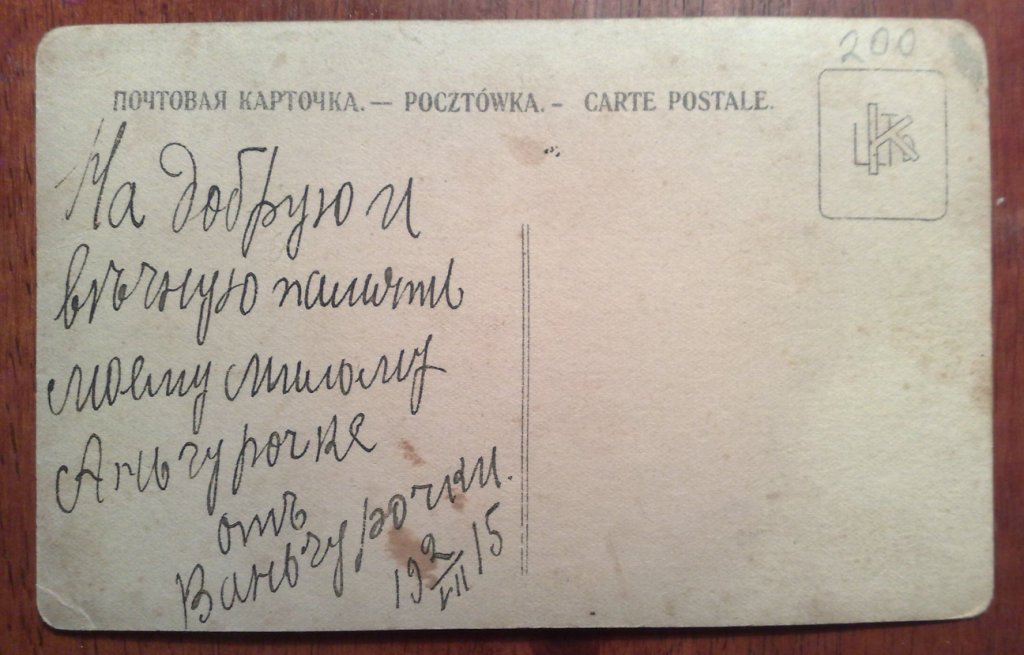 200
ПОЧТОВАЯ КАРТОЧКА.— POCZTÓWKA.- CARTE POSTALE.
На добрую и
вѣчную память
моему милому
Аньчурочке
отъ
Ваньчурочки.
19 2/VII 15